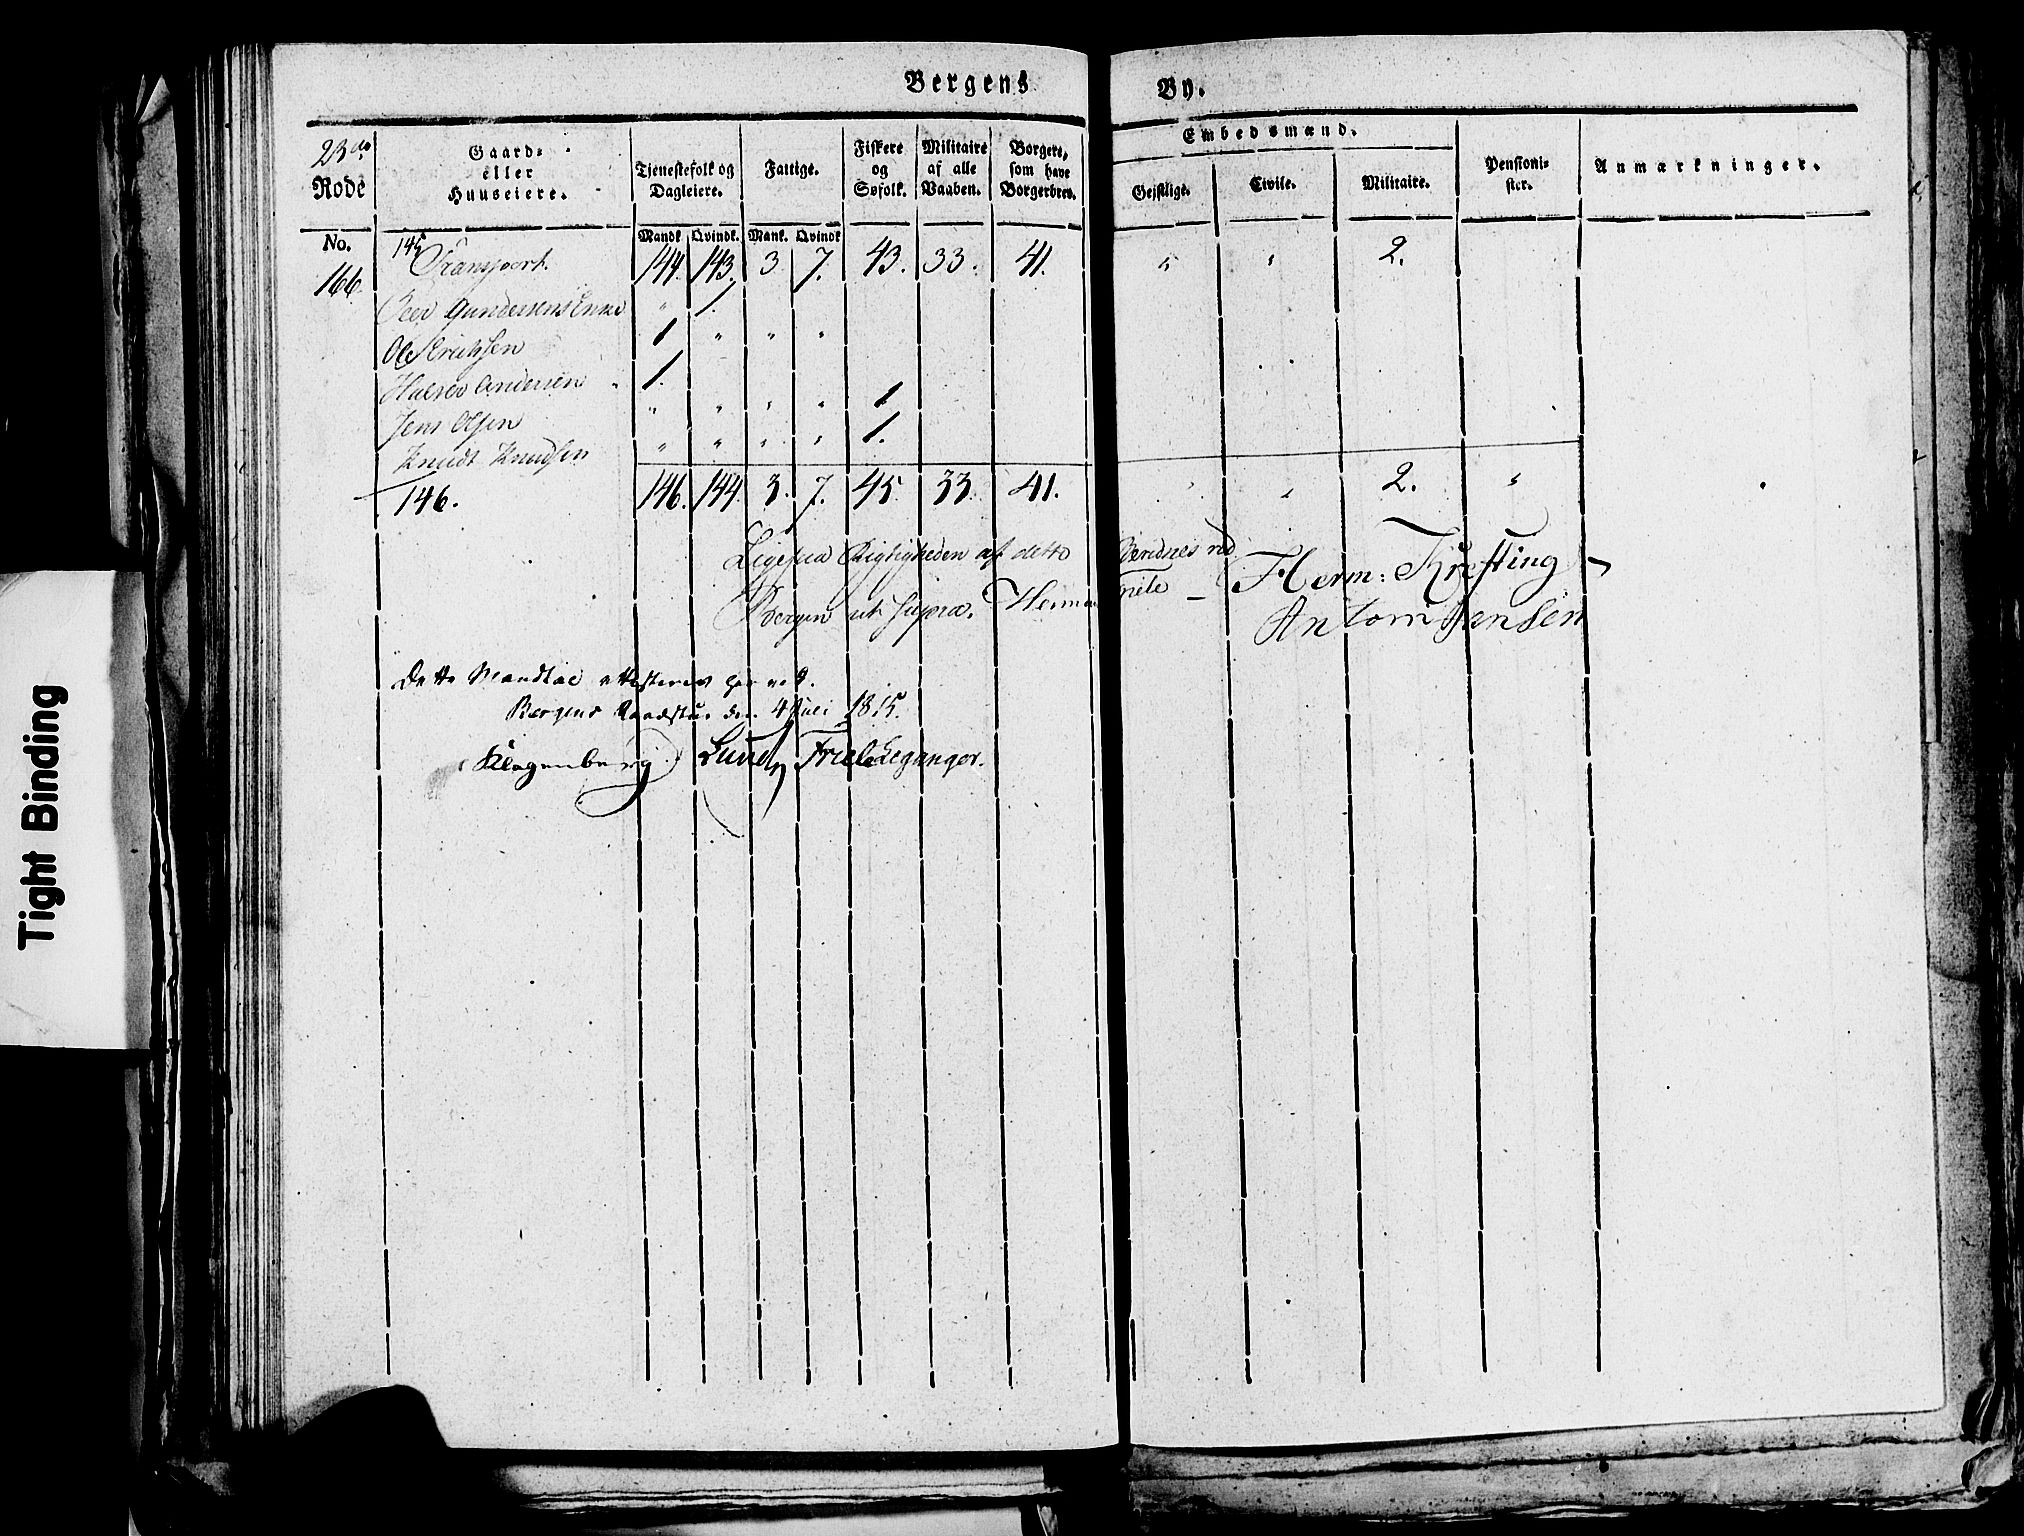 Bergens By.
23de Rode
Gaard- eller Huuseiere.
Tjenestefolk og Dagleiere.
Fattige.
Fiskere og Søfolk.
Militaire af alle Vaaben.
Borgere, som have Borgerbrev.
Embedsmænd.
Geistlige.
Civile.
Militaire.
Pensionister.
Anmærkninger.
No. Mandk. Qvindk. Mank. Qvindk.
145 Transport. 144. 143. 3. 7. 43. 33. 41. " " 2.
166.
Peer Gundersens Enke " 1.
Ole Erichsen 1 " " "
Halvor Andersen 1.
Jens Olsen " " " " 1
Knudt Knudsen " " " " 1.
146. 146. 144. 3. 7. 45. 33. 41. " " 2. "
Rigtigheden af dette
Bergen ut supra. Herman Friele Herm: Krefting
Anton Jansen
Dette Mandtal attesteres herved.
Bergens Raadstue den 4 Juli 1815.
Klagenberg Lund Friele Leganger.
Tight Binding